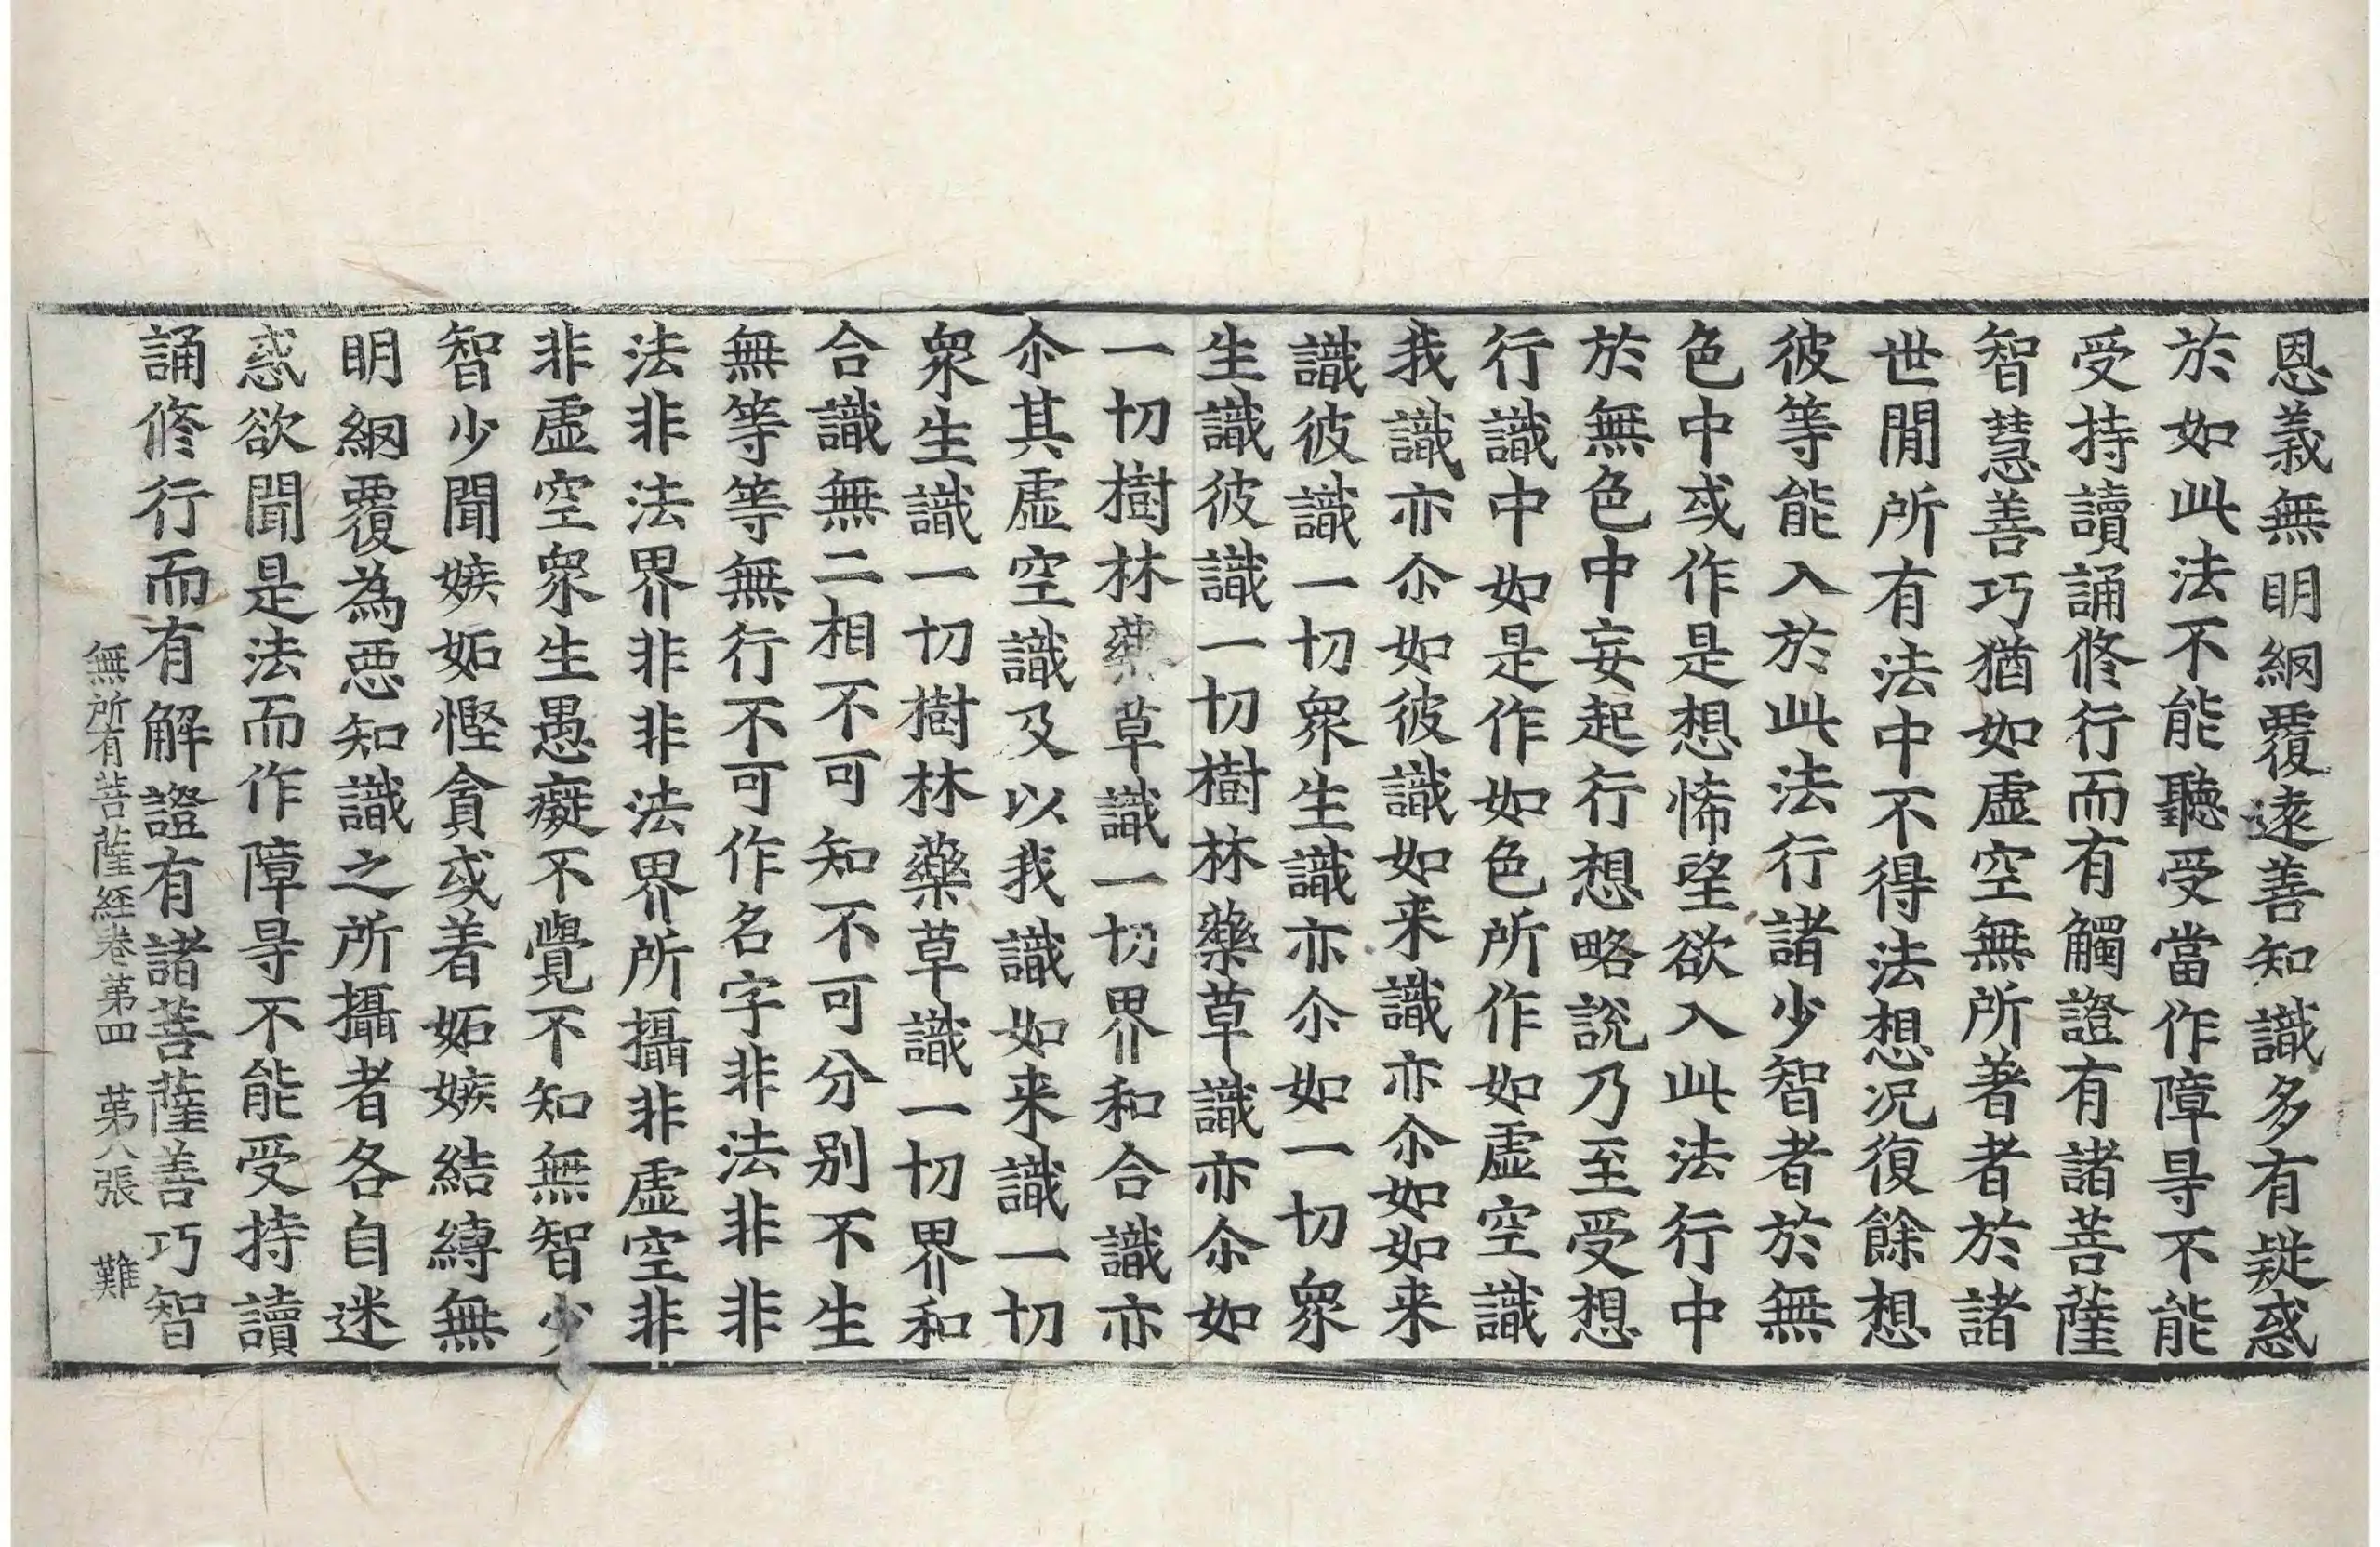 恩義無明網覆遠善知識多有疑惑
於如此法不能聽受當作障㝵不能
受持讀誦修行而有觸證有諸菩薩
智慧善巧猶如虛空無所著者於諸
世閒所有法中不得法想況復餘想
彼等能入於此法行諸少智者於無
色中或作是想悕望欲入此法行中
於無色中妄起行想略說乃至受想
行識中如是作如色所作如虛空識
我識亦尒如彼識如来識亦尒如如来
識彼識一切眾生識亦尒如一切眾
生識彼識一切樹林藥草識亦尒如
一切樹林藥草識一切界和合識亦
尒其虛空識及以我識如来識一切
眾生識一切樹林藥草識一切界和
合識無二相不可知不可分別不生
無等等無行不可作名字非法非非
法非法界非非法界所攝非虛空非
非虛空眾生愚癡不覺不知無智少
智少聞嫉妬慳貪或著妬嫉結縛無
明網覆為惡知識之所攝者各自迷
惑欲聞是法而作障㝵不能受持讀
誦修行而有解證有諸菩薩善巧智
無所有菩薩經卷第四 第八張 難